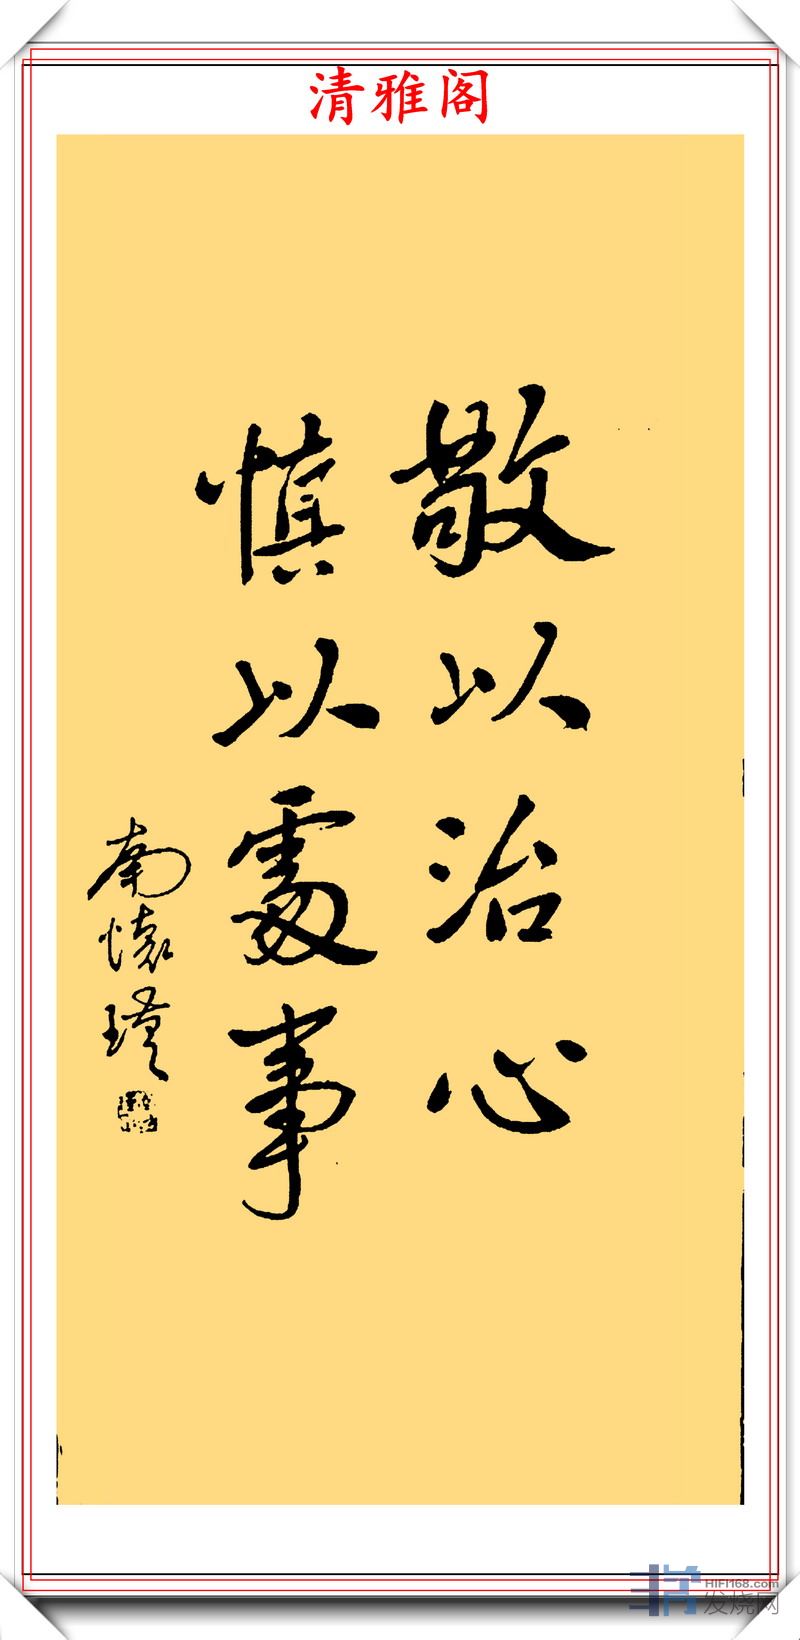 清雅阁
敬以治心
慎以處事
南懷瑾
HIFI168.com
发烧网